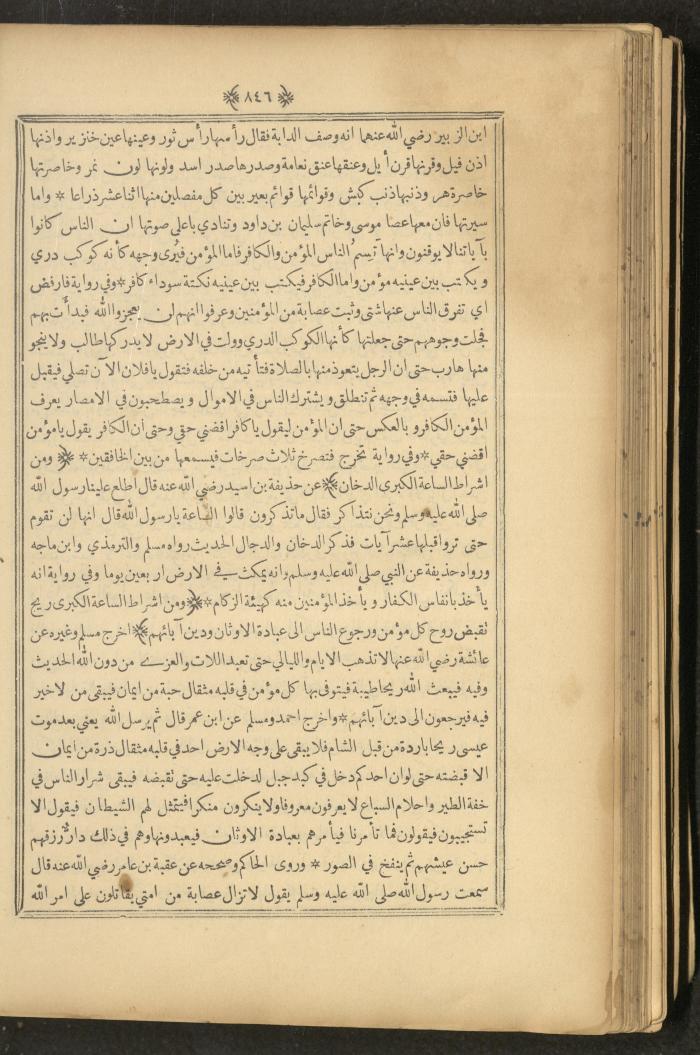 ٨٤٦
ابن الزبير رضي الله عنهما انه وصف الدابة فقال رأسها رأس ثور وعينها عين خنزير واذنها
اذن فيل وقرنها قرن أيل وعنقها عنق نعامة وصدرها صدر اسد ولونها لون نمر وخاصرتها
خاصرة هر وذنبها ذنب كبش وقوائمها قوائم بعير بين كل مفصلين منها اثنا عشر ذراعا * واما
سيرتها فان معها عصا موسى وخاتم سليمان بن داود وتنادي باعلى صوتها ان الناس كانوا
بآياتنا لا يوقنون وانها تسم الناس المؤمن والكافر فاما المؤمن فيرى وجهه كأنه كوكب دري
ويكتب بين عينيه مؤمن واما الكافر فيكتب بين عينيه نكتة سوداء كافر * وفي رواية فارفض
اي تفرق الناس عنها شتى وثبت عصابة من المؤمنين وعرفوا انهم لن يعجزوا الله فبدأت بهم
فجلت وجوههم حتى جعلتها كأنها الكوكب الدري وولت في الارض لا يدركها طالب ولا ينجو
منها هارب حتى ان الرجل يتعوذ منها بالصلاة فتأتيه من خلفه فتقول يا فلان الآن تصلي فيقبل
عليها فتسمه في وجهه ثم تنطلق ويشترك الناس في الاموال ويصطحبون في الامصار يعرف
المؤمن الكافر وبالعكس حتى ان المؤمن ليقول يا كافر اقضني حقي وحتى ان الكافر يقول يا مؤمن
اقضني حقي * وفي رواية تخرج فتصرخ ثلاث صرخات فيسمعها من بين الخافقين * ﴿ ومن
اشراط الساعة الكبرى الدخان ﴾ عن حذيفة بن اسيد رضي الله عنه قال أطلع علينا رسول الله
صلى الله عليه وسلم ونحن نتذاكر فقال ما تذكرون قالوا الساعة يا رسول الله قال انها لن تقوم
حتى تروا قبلها عشر آيات فذكر الدخان والدجال الحديث رواه مسلم والترمذي وابن ماجه
ورواه حذيفة عن النبي صلى الله عليه وسلم وانه يمكث في الارض اربعين يوما وفي رواية انه
يأخذ بانفاس الكفار ويأخذ المؤمنين منه كهيئة الزكام * ﴿ ومن اشراط الساعة الكبرى ريح
تقبض روح كل مؤمن ورجوع الناس الى عبادة الاوثان ودين آبائهم ﴾ اخرج مسلم وغيره عن
عائشة رضي الله عنها لا تذهب الايام والليالي حتى تعبد اللات والعزى من دون الله الحديث
وفيه فيبعث الله ريحا طيبة فيتوفى بها كل مؤمن في قلبه مثقال حبة من ايمان فيبقى من لا خير
فيه فيرجعون الى دين آبائهم * واخرج احمد ومسلم عن ابن عمر قال ثم يرسل الله يعني بعد موت
عيسى ريحا باردة من قبل الشام فلا يبقى على وجه الارض احد في قلبه مثقال ذرة من ايمان
الا قبضته حتى لو ان احدكم دخل في كبد جبل لدخلت عليه حتى تقبضه فيبقى شرار الناس في
خفة الطير واحلام السباع لا يعرفون معروفا ولا ينكرون منكرا فيتمثل لهم الشيطان فيقول الا
تستجيبون فيقولون فما تأمرنا فيأمرهم بعبادة الاوثان فيعبدونها وهم في ذلك دارٌّ رزقهم
حسن عيشهم ثم ينفخ في الصور * وروى الحاكم وصححه عن عقبة بن عامر رضي الله عنه قال
سمعت رسول الله صلى الله عليه وسلم يقول لا تزال عصابة من امتي يقاتلون على امر الله